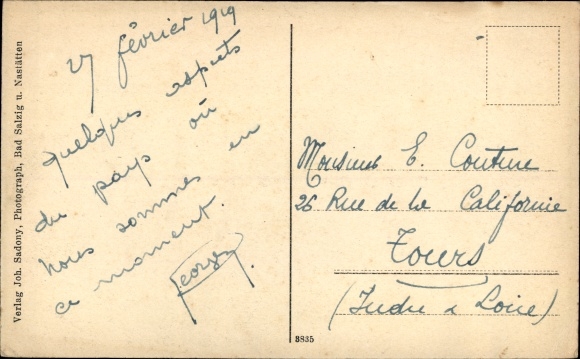 Verlag Joh. Sadony, Photograph, Bad Salzig u. Nastätten
27 février 1919
quelques aspects
du pays où
nous sommes en
ce moment.
Georges
Monsieur E. Couture
26 Rue de la Californie
Tours
(Indre & Loire)
3835